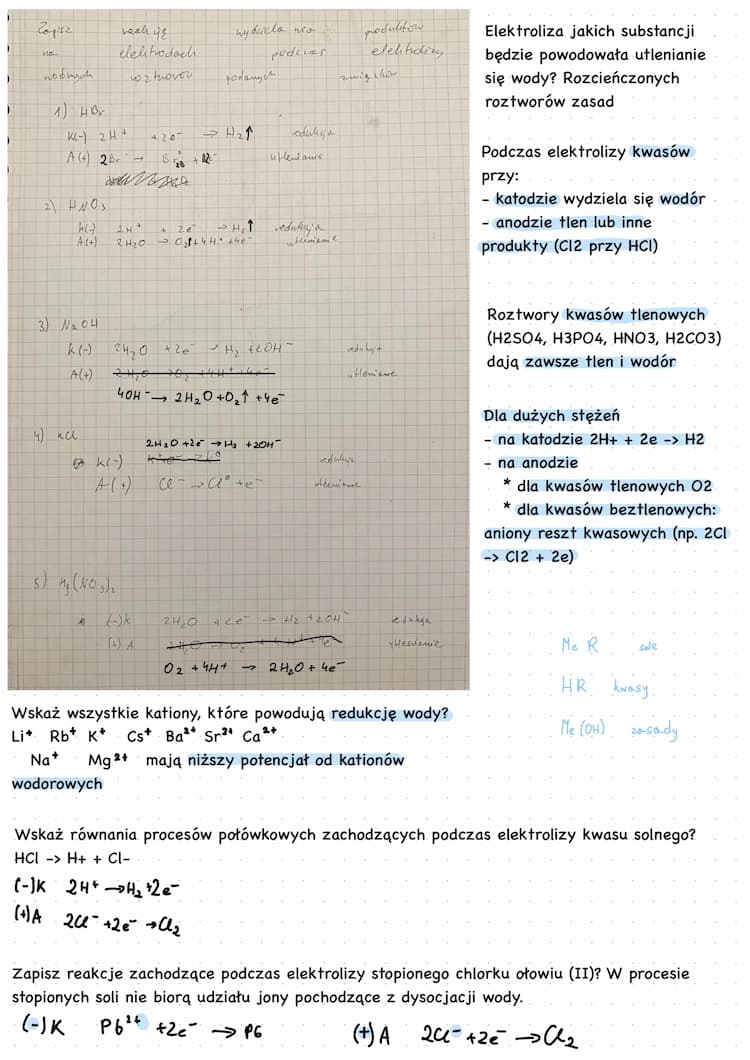 Zapisz reakcję wydziela nia produktów
na elektrodach podczas elektrolizy
wodnych roztworów podanych związków
1) HBr
K(-) 2H+ +2e- → H2↑ redukcja
A(+) 2Br- → utlenianie
2) HNO3
K(-) 2H+ + 2e- → H2↑ redukcja
A(+) 2H2O → O2↑+4H+ +4e- utlenianie
3) NaOH
K(-) 2H2O +2e- → H2 +2OH- redukcja
A(+) 2H2O → O2 +4H+ +4e- utlenianie
4OH- → 2H2O +O2↑ +4e-
4) KCl
2H2O +2e- → H2 +2OH-
K(-) redukcja
A(+) Cl- → Cl° +e- utlenianie
5) Mg(NO3)2
(-)K 2H2O +2e- → H2 +2OH- redukcja
(+)A 2H2O → O2 + 4H+ + 4e- utlenianie
O2 +4H+ → 2H2O + 4e-
Elektroliza jakich substancji
będzie powodowała utlenianie
się wody? Rozcieńczonych
roztworów zasad
Podczas elektrolizy kwasów
przy:
- katodzie wydziela się wodór
- anodzie tlen lub inne
produkty (Cl2 przy HCl)
Roztwory kwasów tlenowych
(H2SO4, H3PO4, HNO3, H2CO3)
dają zawsze tlen i wodór
Dla dużych stężeń
- na katodzie 2H+ + 2e -> H2
- na anodzie
* dla kwasów tlenowych O2
* dla kwasów beztlenowych:
aniony reszt kwasowych (np. 2Cl
-> Cl2 + 2e)
Me R sole
HR kwasy
Me (OH) zasady
Wskaż wszystkie kationy, które powodują redukcję wody?
Li+ Rb+ K+ Cs+ Ba2+ Sr2+ Ca2+
Na+ Mg2+ mają niższy potencjał od kationów
wodorowych
Wskaż równania procesów połówkowych zachodzących podczas elektrolizy kwasu solnego?
HCl -> H+ + Cl-
(-)K 2H+ → H2 +2e-
(+)A 2Cl- +2e- → Cl2
Zapisz reakcje zachodzące podczas elektrolizy stopionego chlorku ołowiu (II)? W procesie
stopionych soli nie biorą udziału jony pochodzące z dysocjacji wody.
(-)K Pb2+ +2e- → Pb (+)A 2Cl- +2e- → Cl2